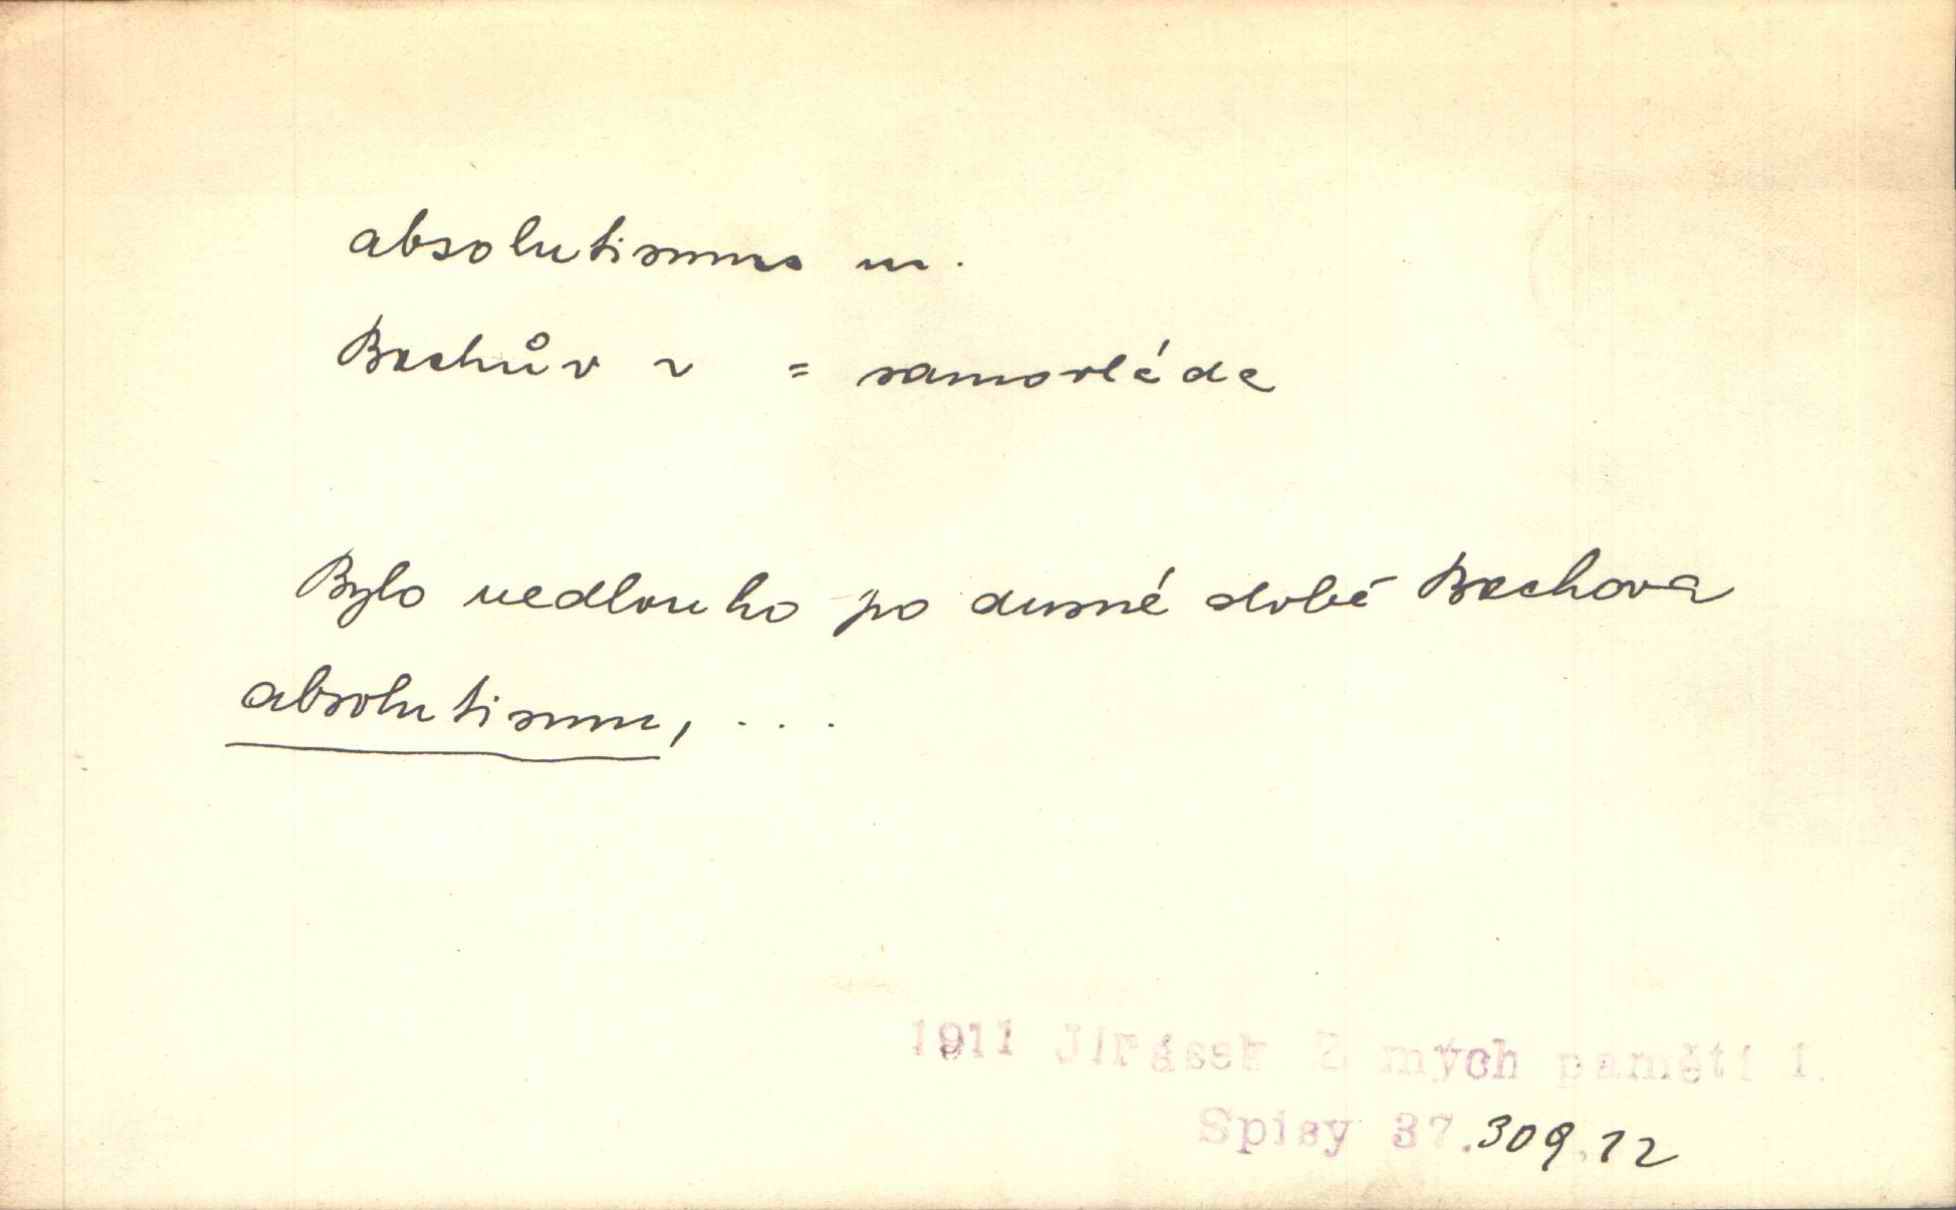 absolutismus m.
Bachův ~ = samovláda
Bylo nedlouho po dusné době Bachova
absolutismu, ...
1911 Jirásek Z mých pamětí 1.
Spisy 37.309,12